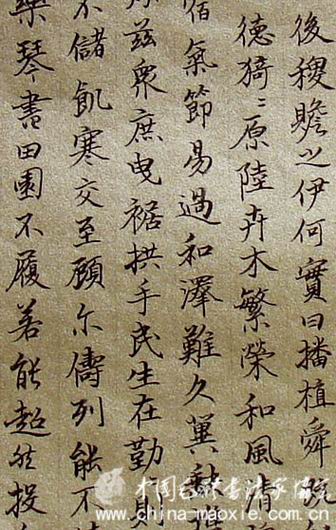 後稷瞻之伊何實曰播植舜既
德猗〻原陸卉木繁榮和風清
宿氣節易過和澤難久冀缺
茲衆庶曳裾拱手民生在勤
不儲飢寒交至顧尔儔列能不
樂琴書田園不履若能超然投
www.china-maoxie.com